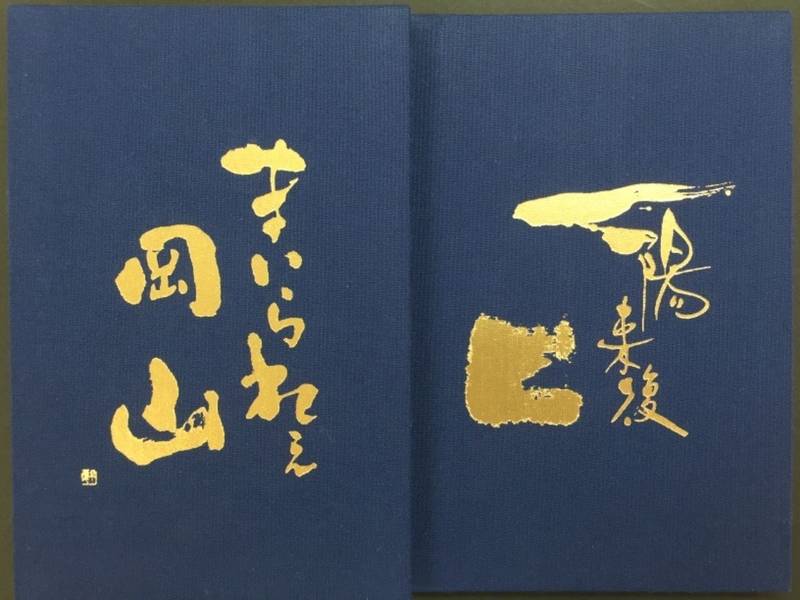 まいられえ
岡山
一陽
来復